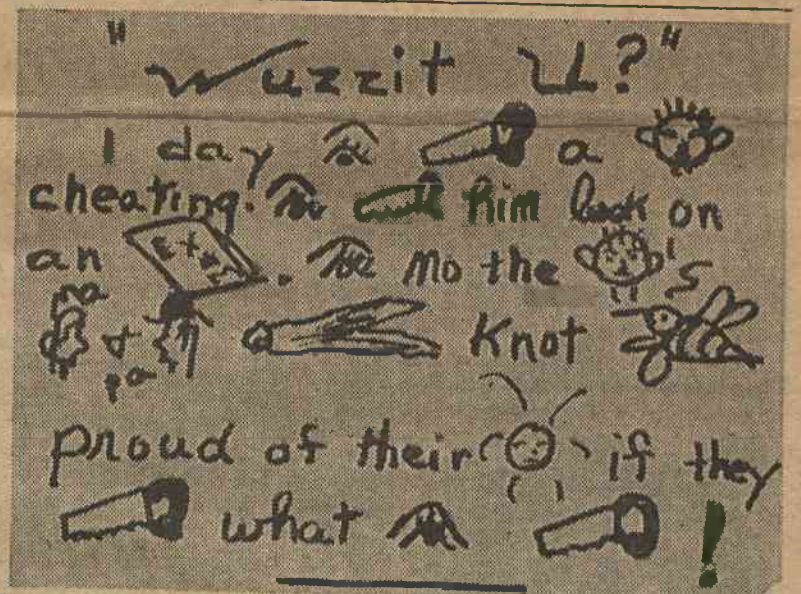 "Wuzzit U?"
1 day a
cheating. him look on
an Exam. no the 's
ma + pa Knot
proud of their if they
what !